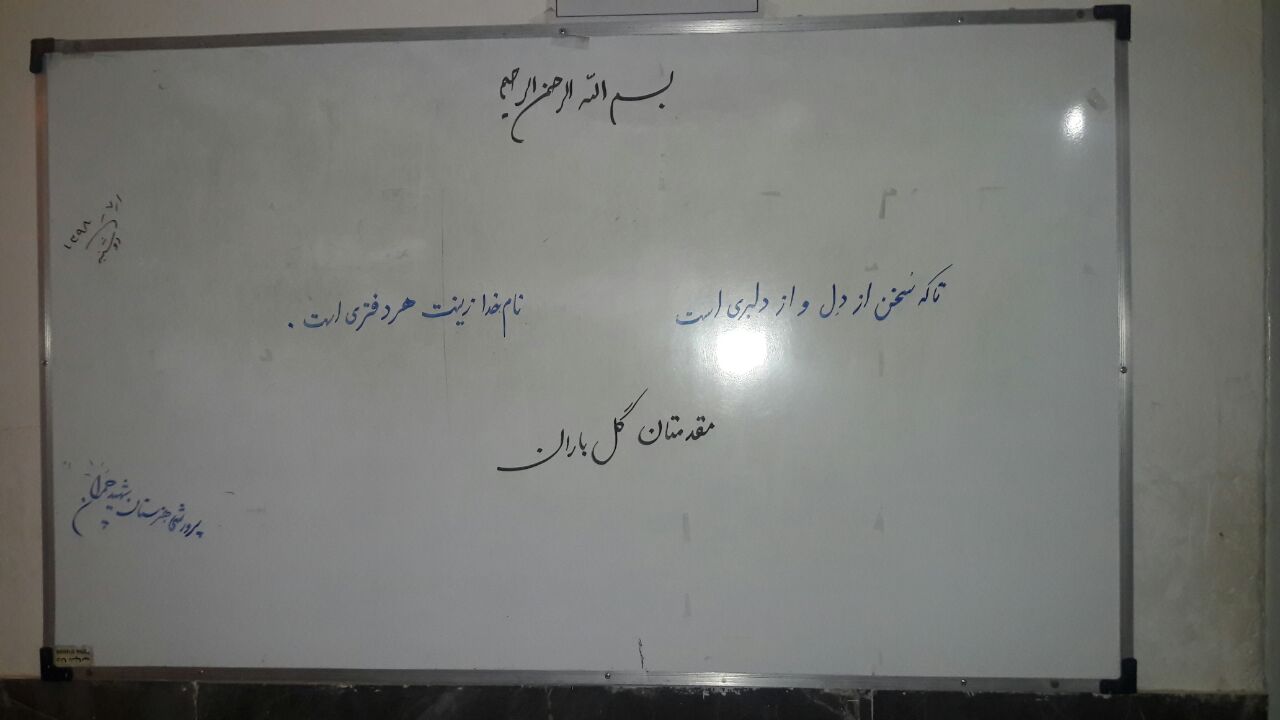 بسم الله الرحمن الرحیم
دوشنبه
۱۳۹۸
تا که سُخن از دل و از دلبری است
نام خدا زینت هر دفتری است .
مقدمتان گل باران
پرورشی هنرستان شهید چمران